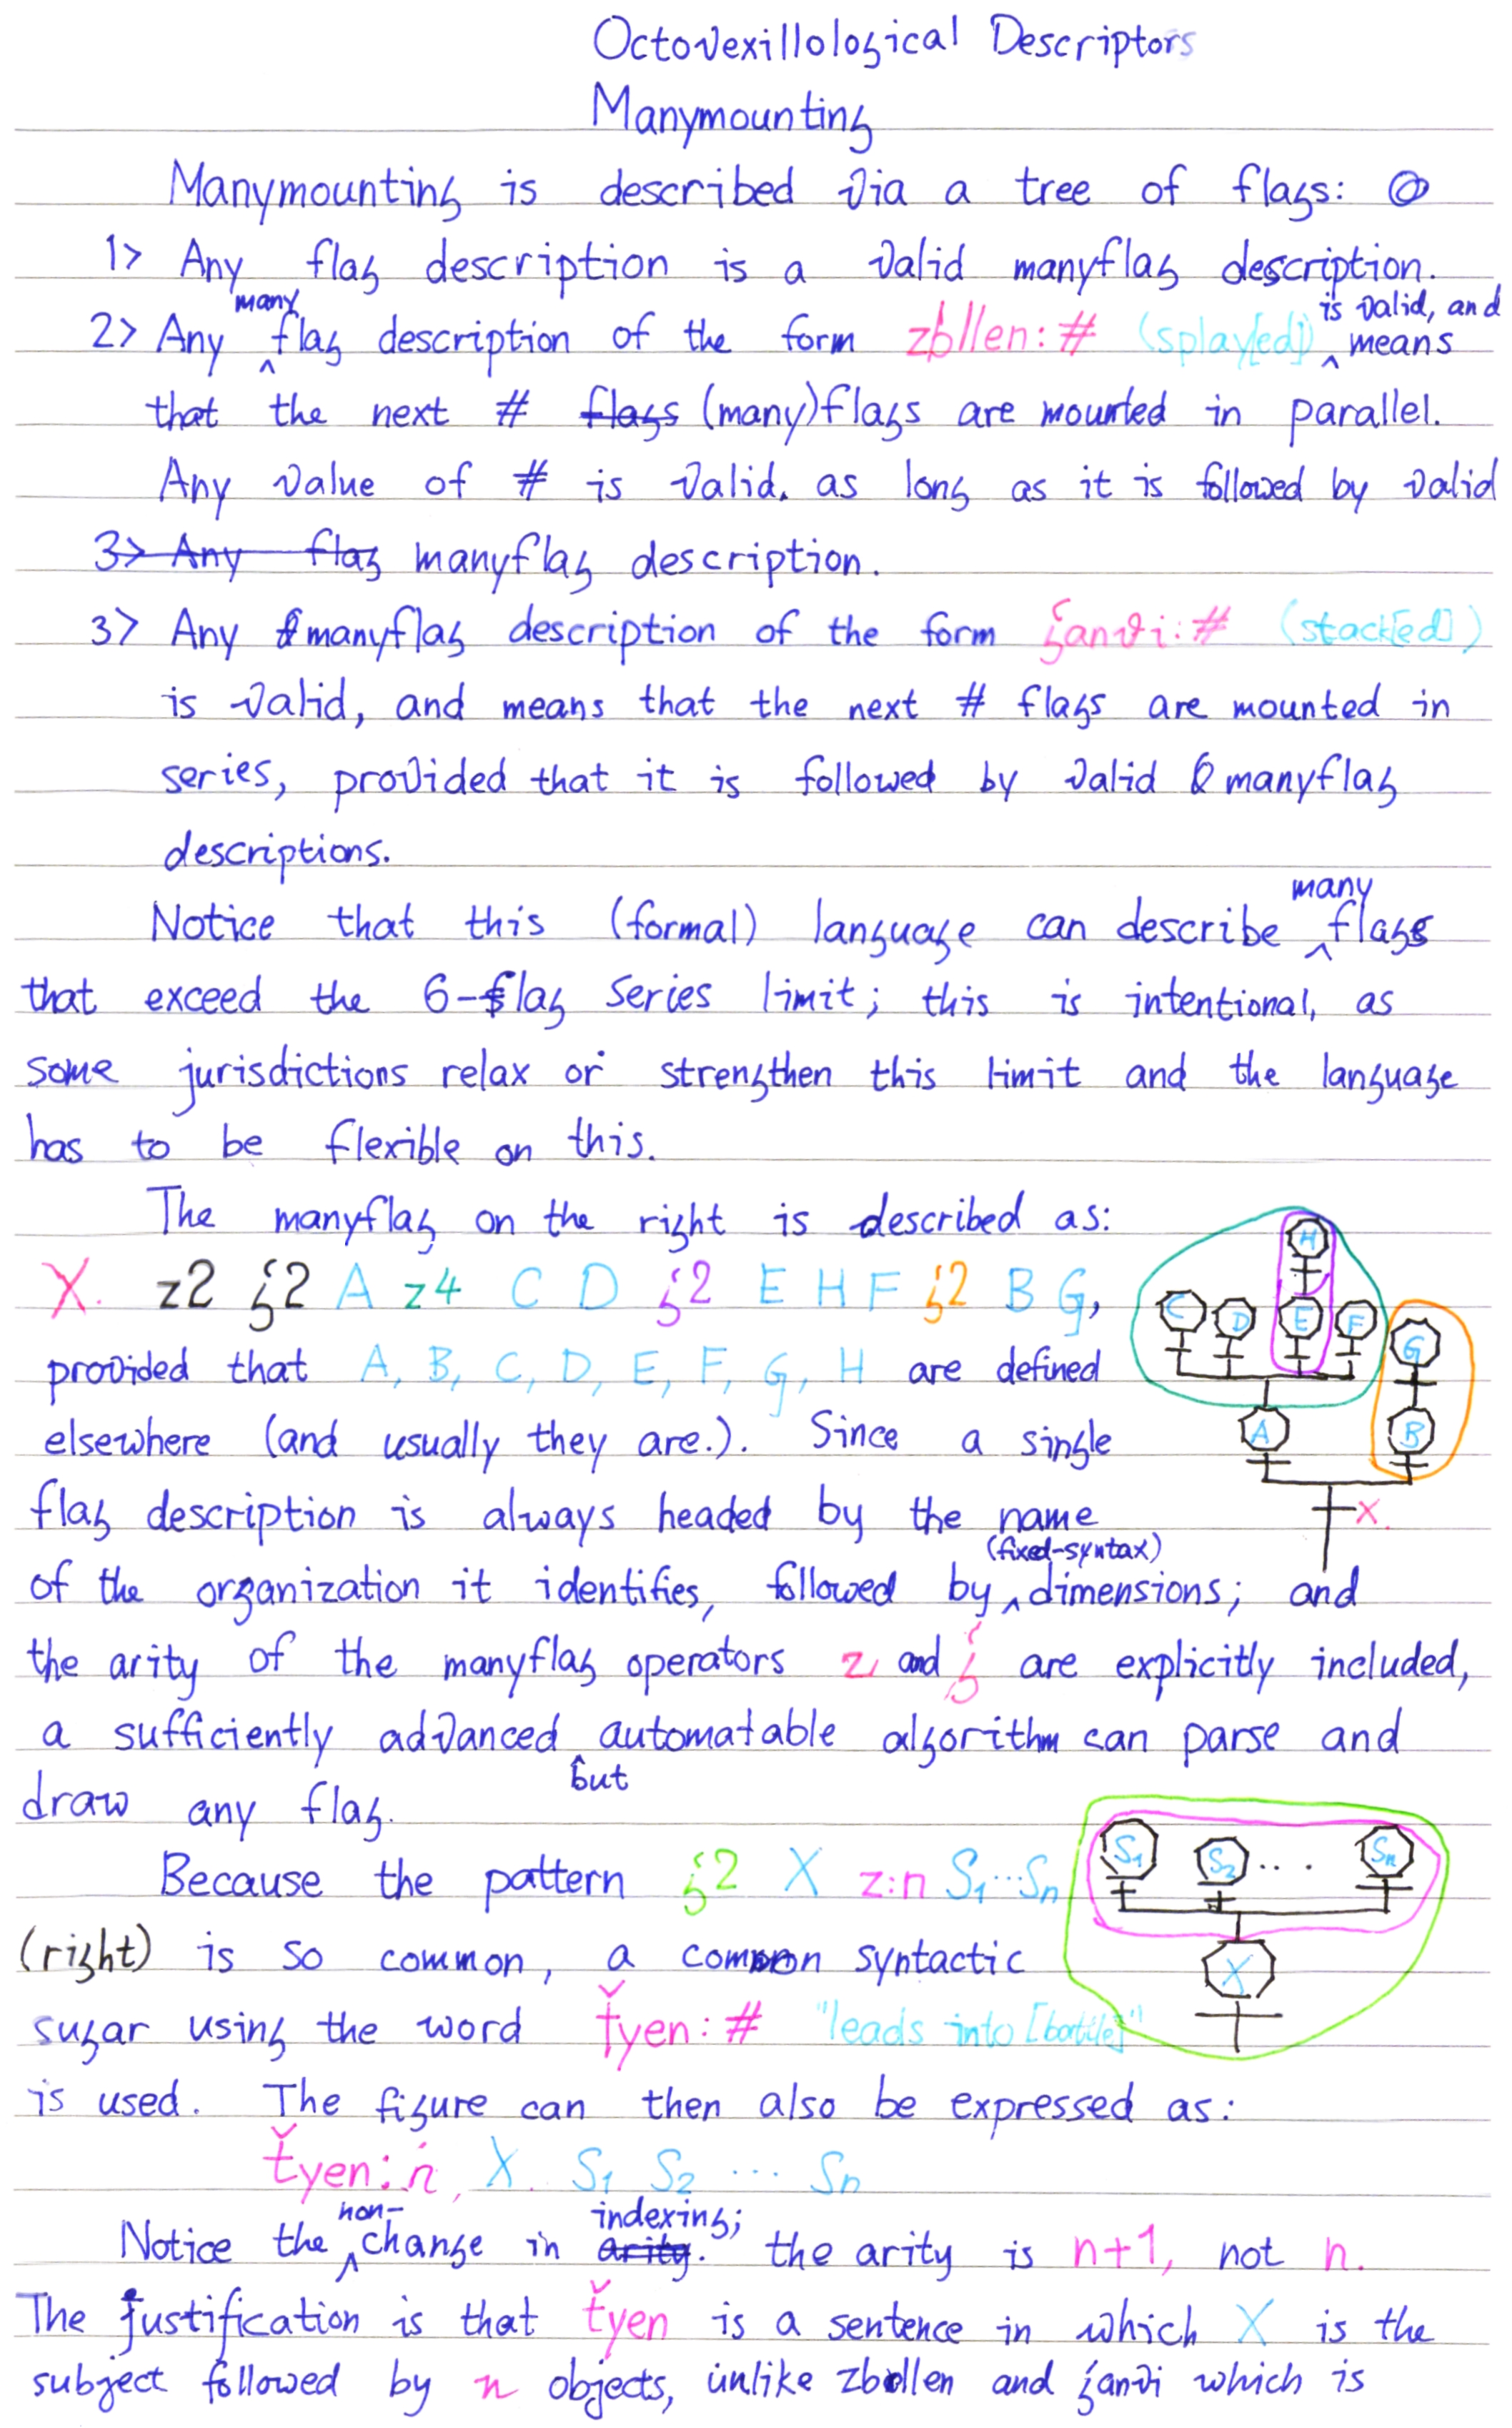 Octovexillological Descriptors
Manymounting
Manymounting is described via a tree of flags:
1> Any flag description is a valid manyflag description.
2> Any many flag description of the form zbllen:# (splay[ed]) is valid, and means
that the next # flags (many)flags are mounted in parallel.
Any value of # is valid. as long as it is followed by valid
3> Any flag manyflag description.
3> Any manyflag description of the form ʒ́anvi:# (stack[ed])
is valid, and means that the next # flags are mounted in
series, provided that it is followed by valid manyflag
descriptions.
Notice that this (formal) language can describe many flags
that exceed the 6-flag series limit; this is intentional, as
some jurisdictions relax or strengthen this limit and the language
has to be flexible on this.
The manyflag on the right is described as:
X. z2 ʒ́2 A z4 C D ʒ́2 E H F ʒ́2 B G,
provided that A, B, C, D, E, F, G, H are defined
elsewhere (and usually they are.). Since a single
flag description is always headed by the name
of the organization it identifies, followed by (fixed-syntax) dimensions; and
the arity of the manyflag operators z and ʒ́ are explicitly included,
a sufficiently advanced but automatable algorithm can parse and
draw any flag.
H
C D E F G
A B
X.
Because the pattern ʒ́2 X z:n S1...Sn
(right) is so common, a common syntactic
sugar using the word ťyen:# "leads into"
is used. The figure can then also be expressed as:
S1 S2 ... Sn
X
ťyen:n, X. S1 S2 ... Sn
Notice the non-change in arity. indexing; the arity is n+1, not n.
The justification is that ťyen is a sentence in which X is the
subject followed by n objects, unlike zbollen and ʒ́anvi which is